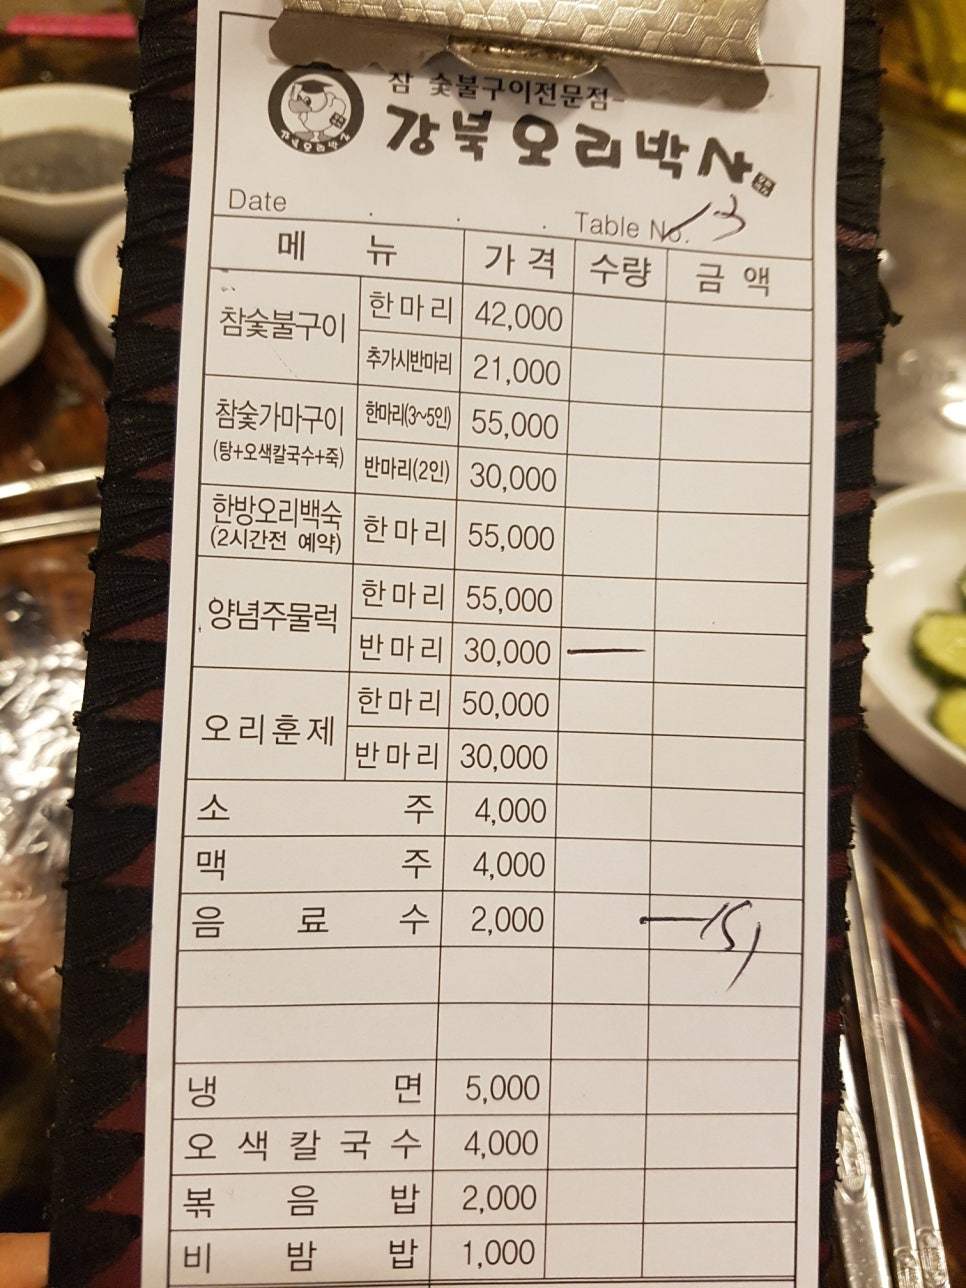 참 숯불구이전문점
강북오리박사
강북오리박사
Date
Table No. 13
메 뉴 가 격 수량 금 액
참숯불구이 한 마 리 42,000
추가시반마리 21,000
참숯가마구이 한마리(3~5인) 55,000
(탕+오색칼국수+죽) 반마리(2인) 30,000
한방오리백숙
(2시간전 예약) 한 마 리 55,000
양념주물럭 한 마 리 55,000
반 마 리 30,000 —
오 리 훈 제 한 마 리 50,000
반 마 리 30,000
소 주 4,000
맥 주 4,000
음 료 수 2,000
냉 면 5,000
오 색 칼 국 수 4,000
볶 음 밥 2,000
비 밤 밥 1,000